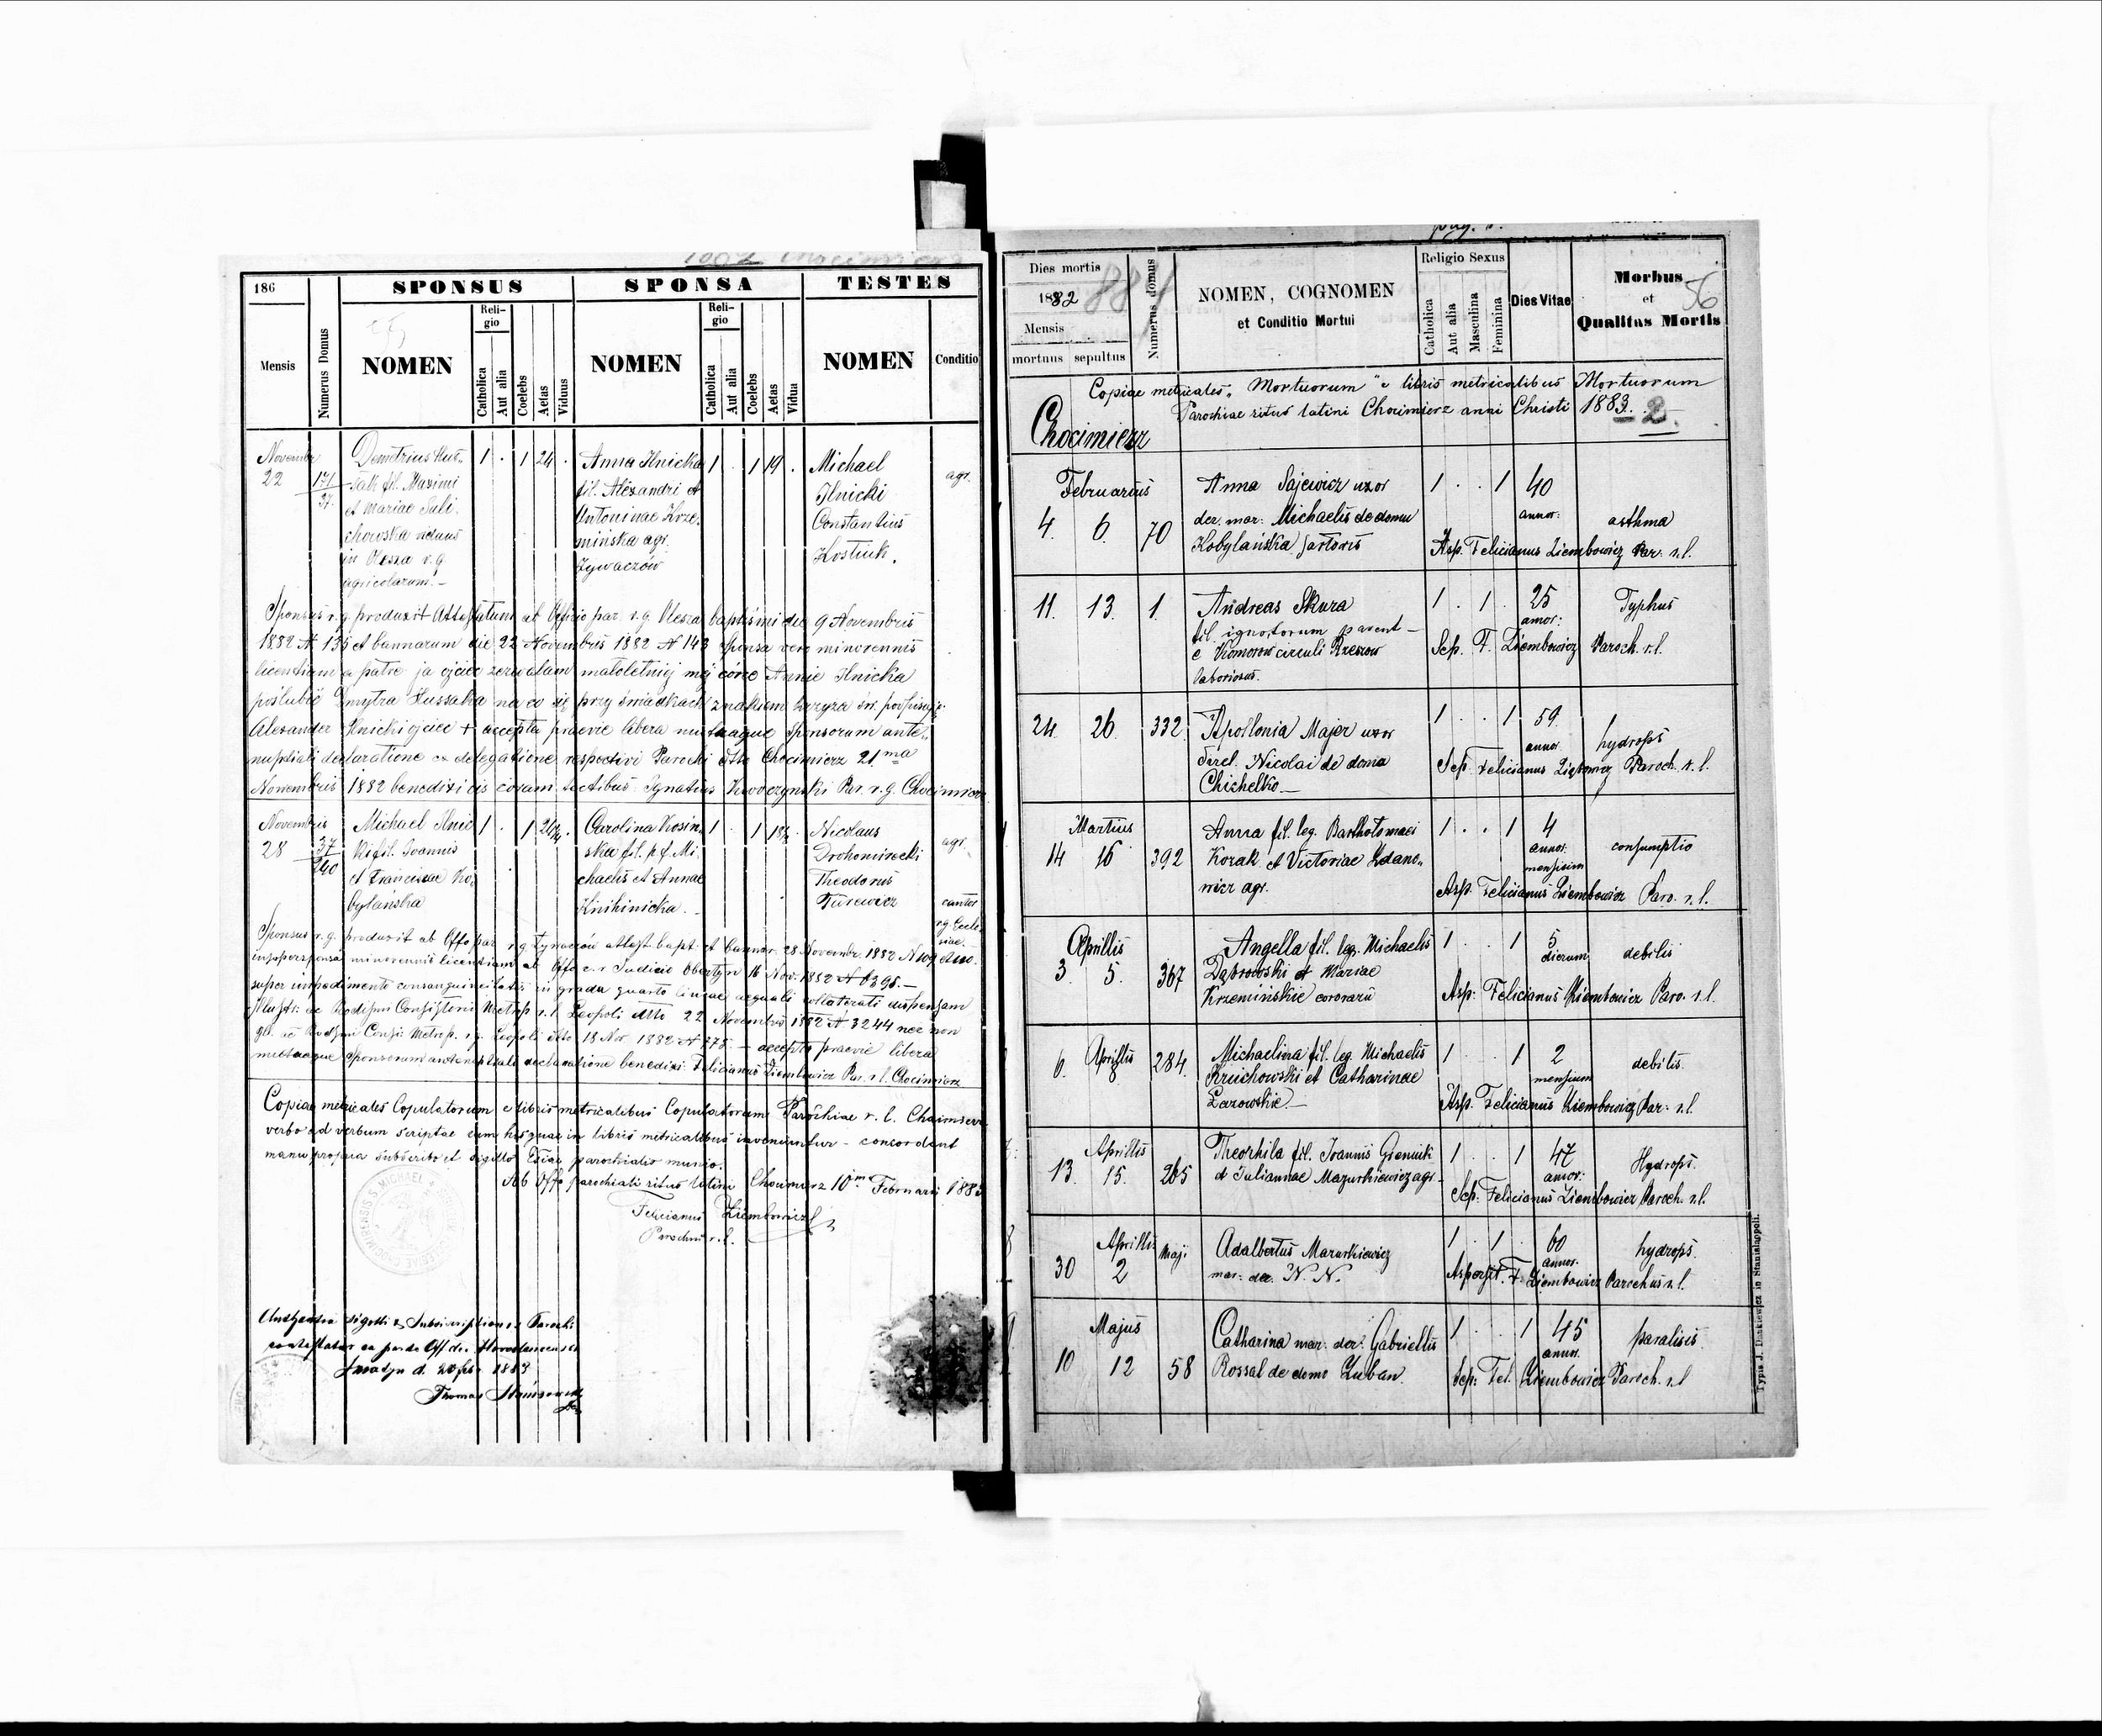 186
SPONSUS
SPONSA
TESTES
Mensis
Numerus Domus
NOMEN
Religio
Catholica
Aut alia
Coelebs
Aetas
Viduus
NOMEN
Religio
Catholica
Aut alia
Coelebs
Aetas
Vidua
NOMEN
Conditio
Novembr
22
171
37.
Demetrius Hus-
sak fil. Maximi
et Mariae Sali-
chowska viduus
in Olesza r.g.
agricolarum.-
1 . 1 24 .
Anna Ilnicka
fil. Alexandri et
Antoninae Krze-
mińska agr.
Żywaczów
1 . 1 19 .
Michael
Ilnicki
Constantius
Kostiuk.
agr.
Sponsus r.g. produxit Attestatum ab Officio par. r.g. Olesza baptismi die 9 Novembris
1882 N 135 et bannarum die 22 Novembris 1882 N 143 Sponsa vero minorennis
licentiam a patre ja ojciec zezwalam małoletniej mej córce Annie Ilnicka
poślubić Dmytra Hussaka na co się przy świadkach znakiem krzyża św. podpisuje
Alexander Ilnicki ojciec + accepta praevie libera mutuaque Sponsorum ante-
nuptiali declaratione ex delegatione respectivi Parochi dtto Chocimierz 21ma
Novembris 1882 benedixi eis coram testibus Ignatius Par. r.g. Chocimierz
Novembris
28
37
240
Michael Ilnic
ki fil. Joannis
et Franciscae Ko-
bylańska
1 . 1 24
Carolina Kosin-
ska fil. p. f. Mi-
chaelis et Annae
Knihinicka.
1 . 1
Nicolaus
Drohomirecki
Theodorus
Turewicz
agr.
cantor
r.g. Eccle-
siae.
Sponsus r.g. produxit ab Offo par r.g. Żywaczów attest. bapt. et bannor. 28 Novembr. 1882 N 109
insuper sponsa minorennis licentiam ab Offo c.r. Judicio Obertyn 16 Nov. 1882 N 6395.-
super impedimento consanguineitatis in gradu quarto lineae aequali collaterali dispensam
Metrop. r.l. Leopoli dtto 22 Novembris 1882 N 3244 nec non
Metrop. r.g. Leopoli dtto 18 Nov. 1882 N 775.- accepta praevie libera
mutuaque Sponsorum antenuptiali declaratione benedixi Felicianus Ziembowicz Par. r.l. Chocimierz
Copiae metricales Copulatorum e libris metricalibus Copulatorum Parochiae r.l. Chocimierz
verbo ad verbum scriptae cum his quae in libris metricalibus inveniuntur - concordant
manu propria subscribo et sigillo Eslae parochialis munio.
Ab Offo parochiali ritus latini Chocimierz 10ma Februarii 1883
Felicianus Ziembowicz
Parochus r.l.
sigilli & Subscriptionis Parochi
contestatur ex parte Off. dec.
d. 20 febr 1883
Thomas
Dies mortis
1882
Mensis
mortuus
sepultus
Numerus domus
NOMEN, COGNOMEN
et Conditio Mortui
Religio
Sexus
Catholica
Aut alia
Masculina
Feminina
Dies Vitae
Morbus
et
Qualitas Mortis
56
Copiae metricales „Mortuorum" e libris metricalibus Mortuorum
Parochiae ritus latini Chocimierz anni Christi 1883.
2.
Chocimierz
Februarius
4. 6. 70
Anna Sajewicz uxor
der. mar: Michaelis de domu
Kobylańska Sartoris
1 . . 1 40
annor:
asthma
Asp. Felicianus Ziembowicz Par. r.l.
11. 13. 1.
Andreas Skura
fil. ignotorum parent-
e Komorow circuli Rzeszow
laboriosus.
1 . 1 . 25
annor:
Typhus
Sep. F. Ziembowicz Paroch. r.l.
24. 26. 332.
Apollonia Majer uxor
derel. Nicolai de doma
Chichelko-
1 . . 1 59.
annor.
hydrops
Sep. Felicianus Paroch. r.l.
Martius
14 16 392
Anna fil. leg. Bartholomaei
Kozak et Victoriae Zdano-
wicz agr.
1 . . 1 4
annor.
mensium
consumptio
Asp. Felicianus Ziembowicz Paro. r.l.
Aprillis
3. 5. 367
Angella fil. leg. Michaelis
Dąbrowski et Mariae
Krzemińskie
1 . . 1 5
dierum
debilis
Asp: Felicianus Ziembowicz Paro. r.l.
Aprillis
6. 8 284.
Michaelina fil. leg. Michaelis
Kruchowski et Catharinae
Lazowskie.-
1 . . 1 2
mensium
debilis.
Asp. Felicianus Ziembowicz Par. r.l.
Aprillis
13. 15. 265
Theophila fil. Joannis
et Juliannae Mazurkiewicz agr-
1 . . 1 47
annor.
Hydrops.
Sep: Felicianus Ziembowicz Paroch. r.l.
Aprillis Maji.
30 2
Adalbertus Mazurkiewicz
mar: der. N. N.
1 . 1 . 60
annor.
hydrops.
Aspersit. F. Ziembowicz Parochus r.l.
Majus
10 12 58
Catharina mar. der. Gabriellis
Rossal de domo Luban.
1 . . 1 45
annor.
paralisis
Sep: Fel. Ziembowicz Paroch. r.l
Typis J. Dankiewicz in Stanislaopoli.